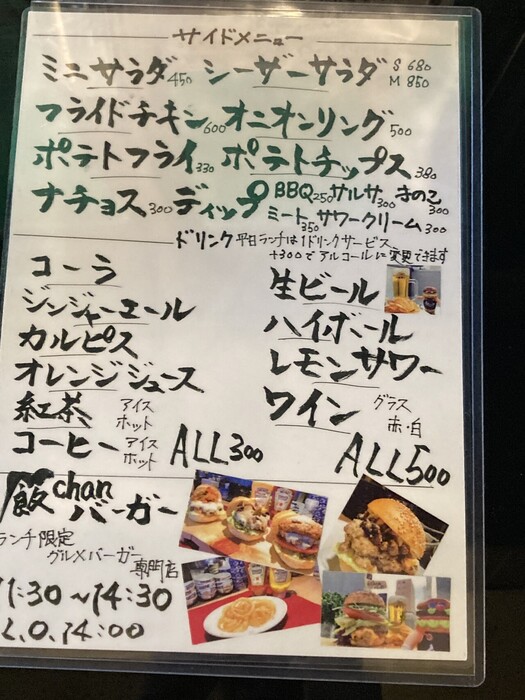 サイドメニュー
ミニサラダ450 シーザーサラダ S 680
M 850
フライドチキン600 オニオンリング500
ポテトフライ330 ポテトチップス380
ナチョス300 ディップ BBQ250 サルサ300 きのこ300
ミート350 サワークリーム300
ドリンク 平日ランチは1ドリンクサービス
+300で アルコールに変更できます
コーラ
ジンジャーエール
カルピス
オレンジジュース
紅茶 アイス
ホット
コーヒー アイス
ホット
ALL300
生ビール
ハイボール
レモンサワー
ワイン グラス
赤・白
ALL500
飯chan
バーガー
ランチ限定
グルメバーガー
専門店
11:30~14:30
L.O.14:00